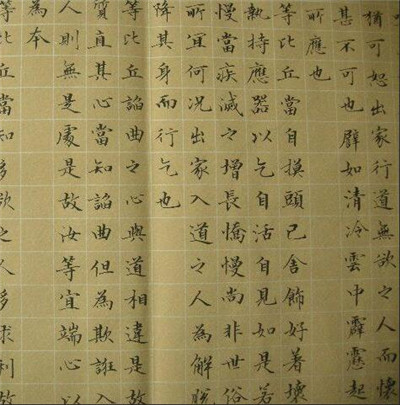 猶可恕出家行道無欲之人而懷
甚不可也譬如清冷雲中霹靂起
所應也
等比丘當自摸頭已舍飾好著壞
執持應器以乞自活自見如是若
慢當疾滅之增長憍慢尚非世俗
所宜何況出家入道之人為解脫
降其身而行乞也
等比丘諂曲之心與道相違是故
質直其心當知諂曲但為欺誑入
人則無是處是故汝等宜端心以
為本
等比丘當知多欲之人多求利故